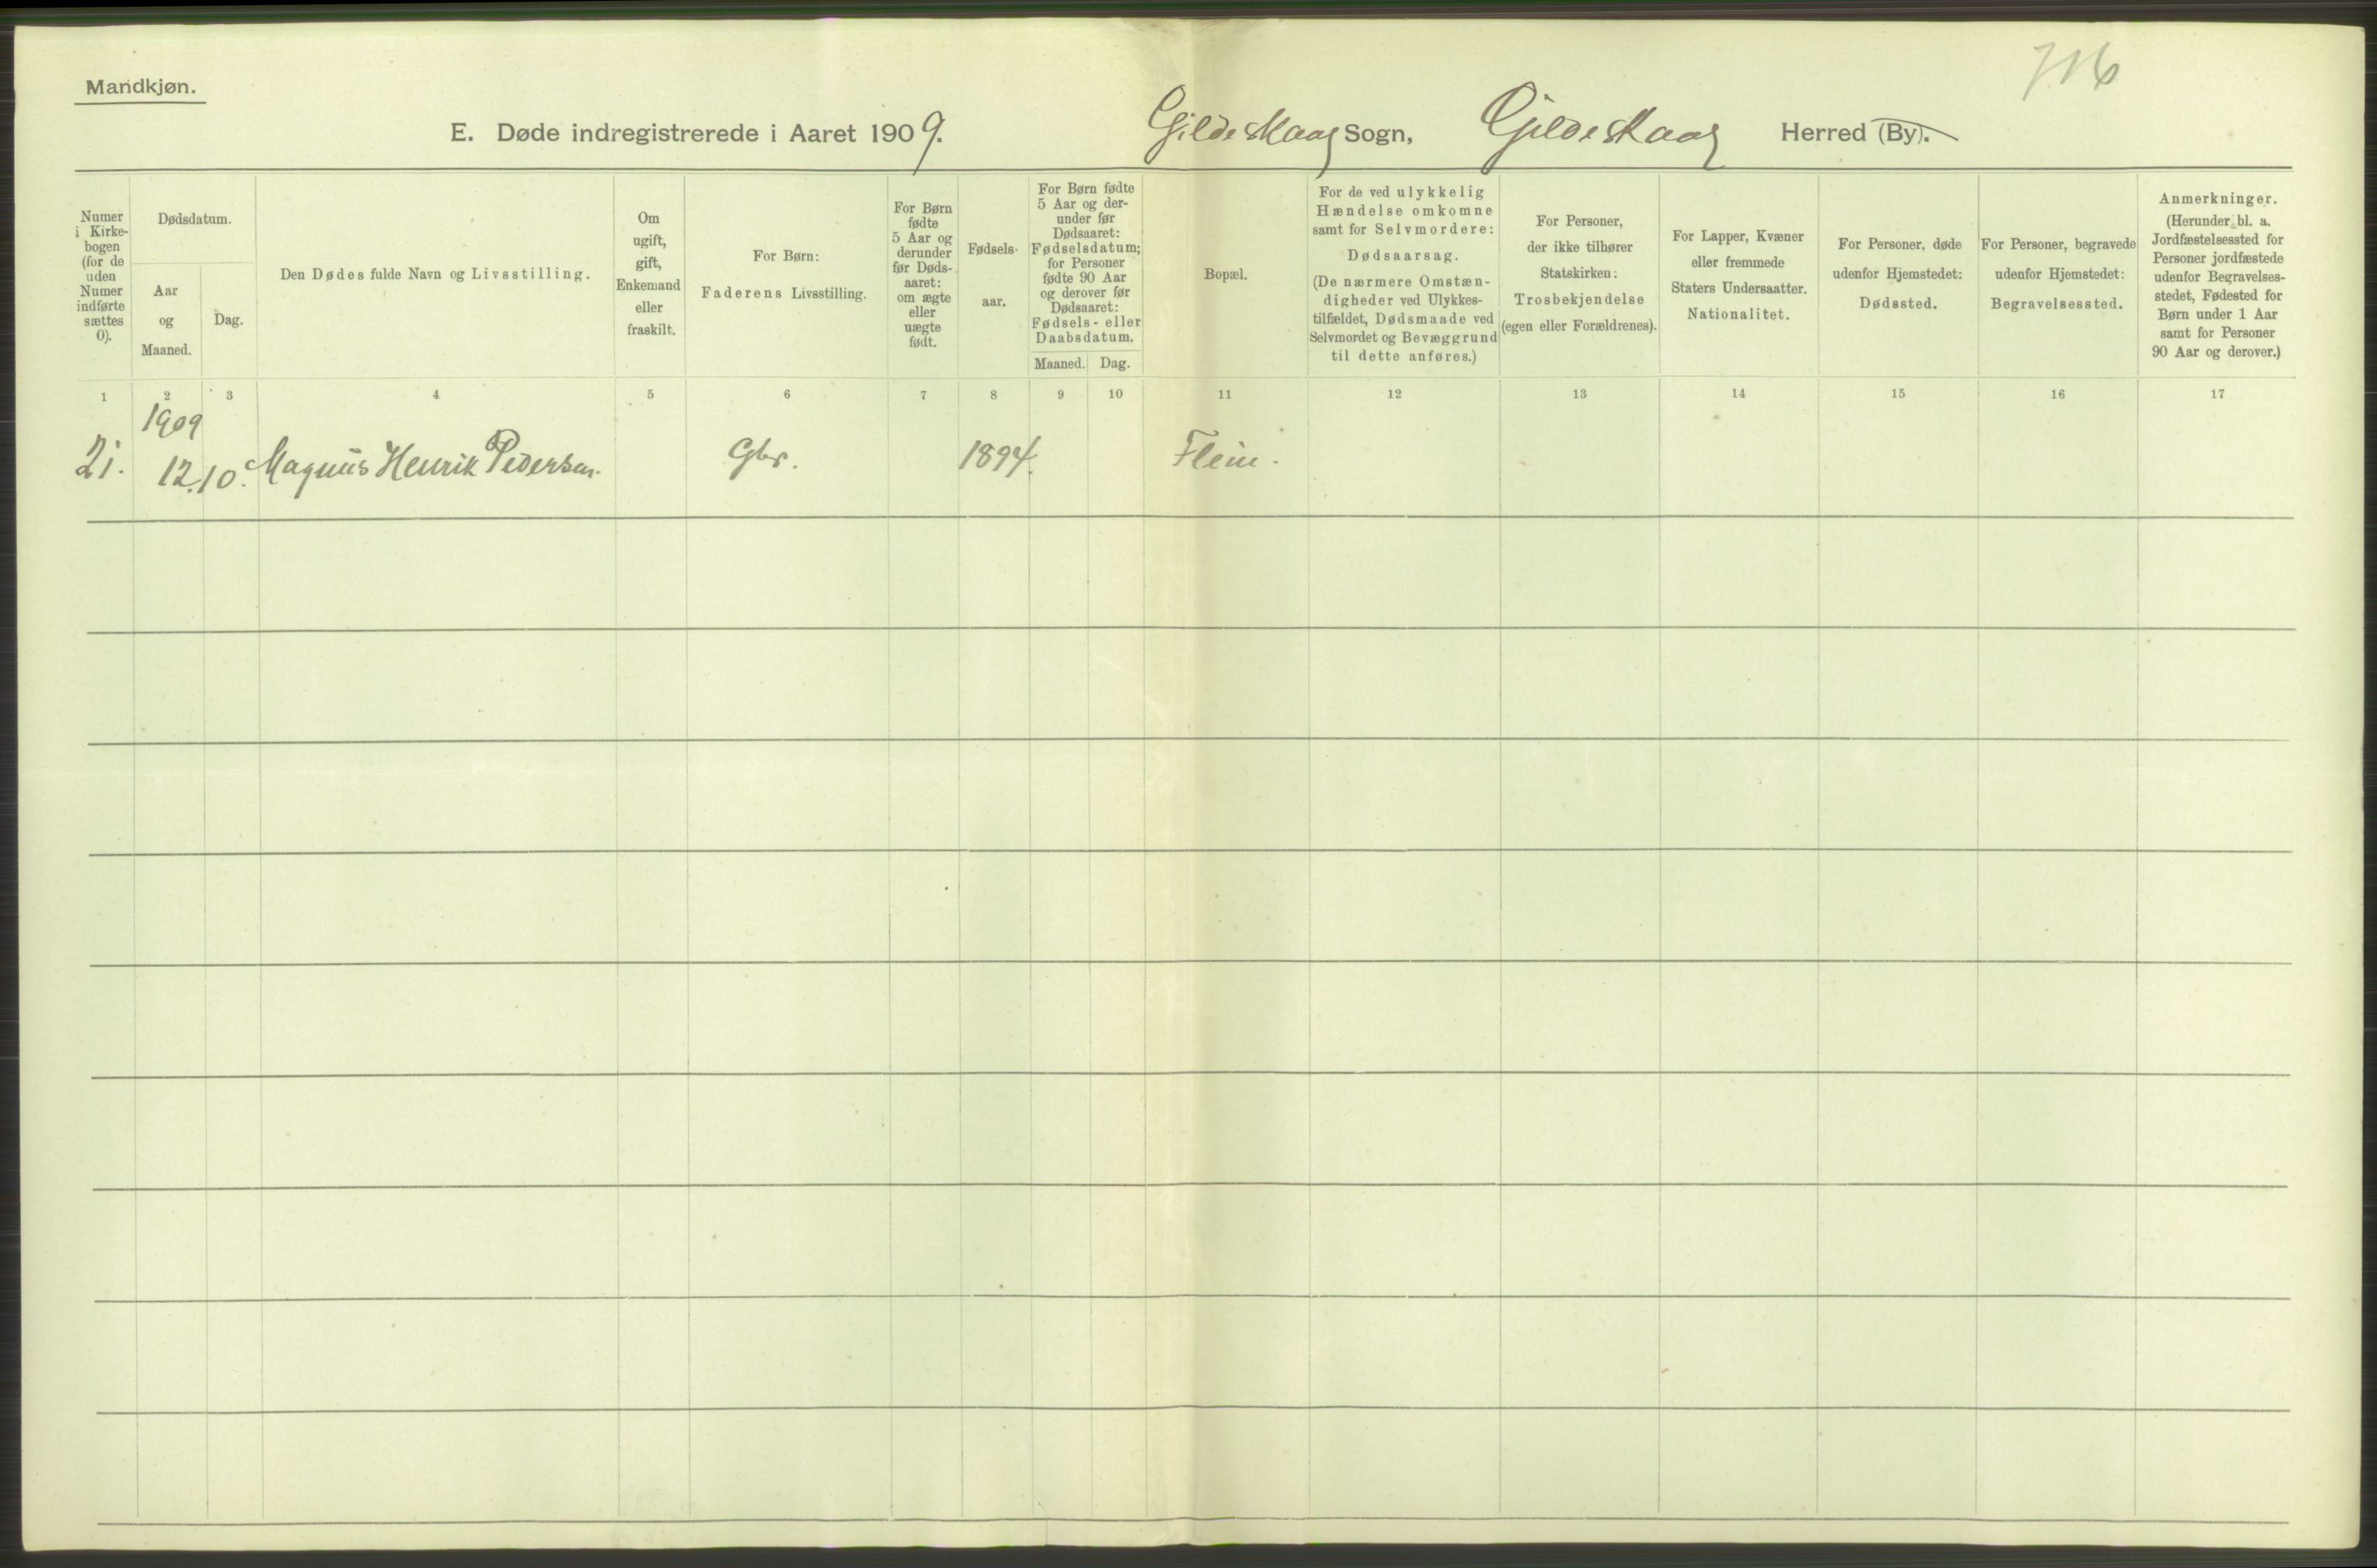 Mandkjøn.
716
E. Døde indregistrerede i Aaret 1909. Gildeskaag Sogn, Gildeskaag Herred (By).
Numer
i Kirke-
bogen
(for de
uden
Numer
indførte
sættes
0).
Dødsdatum.
Aar
og
Maaned.
Dag.
Den Dødes fulde Navn og Livsstilling.
Om
ugift,
gift,
Enkemand
eller
fraskilt.
For Børn:
Faderens Livsstilling.
For Børn
fødte
5 Aar og
derunder
før Døds-
aaret:
om ægte
eller
uægte
født.
Fødsels-
aar.
For Børn fødte
5 Aar og der-
under før
Dødsaaret:
Fødselsdatum;
for Personer
fødte 90 Aar
og derover før
Dødsaaret:
Fødsels- eller
Daabsdatum.
Maaned. Dag.
Bopæl.
For de ved ulykkelig
Hændelse omkomne
samt for Selvmordere:
Dødsaarsag.
(De nærmere Omstæn-
digheder ved Ulykkes-
tilfældet, Dødsmaade ved
Selvmordet og Bevæggrund
til dette anføres.)
For Personer,
der ikke tilhører
Statskirken:
Trosbekjendelse
(egen eller Forældrenes).
For Lapper, Kvæner
eller fremmede
Staters Undersaatter.
Nationalitet.
For Personer, døde
udenfor Hjemstedet:
Dødssted.
For Personer, begravede
udenfor Hjemstedet:
Begravelsessted.
Anmerkninger.
(Herunder bl. a.
Jordfæstelsessted for
Personer jordfæstede
udenfor Begravelses-
stedet, Fødested for
Børn under 1 Aar
samt for Personer
90 Aar og derover.)
1 2 3 4 5 6 7 8 9 10 11 12 13 14 15 16 17
1909
21. 12. 10. Magnus Henrik Pedersen. Gbr. 1894. Flein.